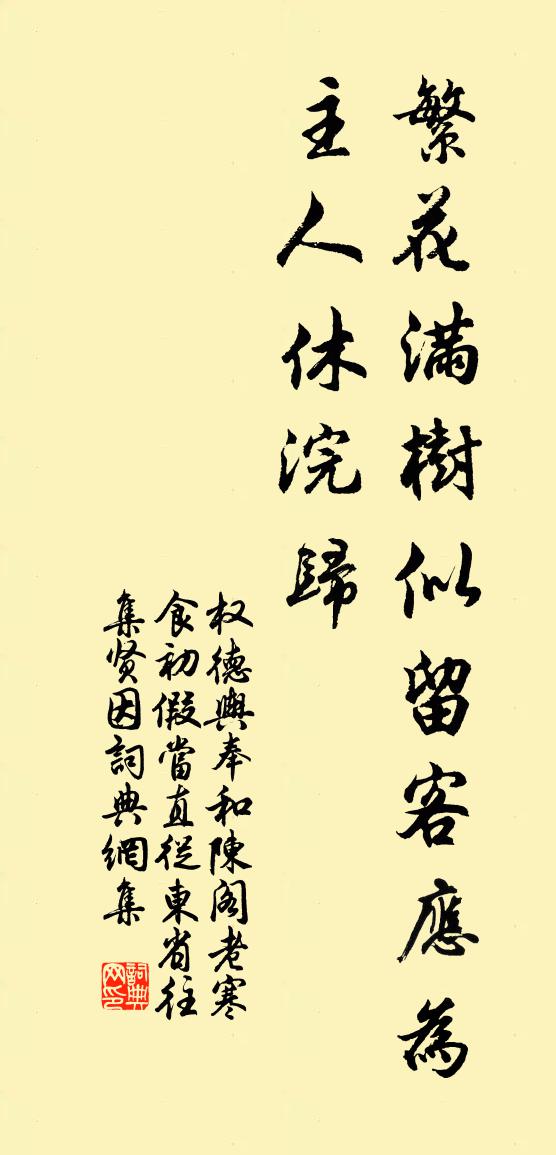 繁花滿樹似留客應為
主人休浣歸
权德輿奉和陳阁老寒
食初假當直從東省往
集贤因詞典網集
詞典
网印